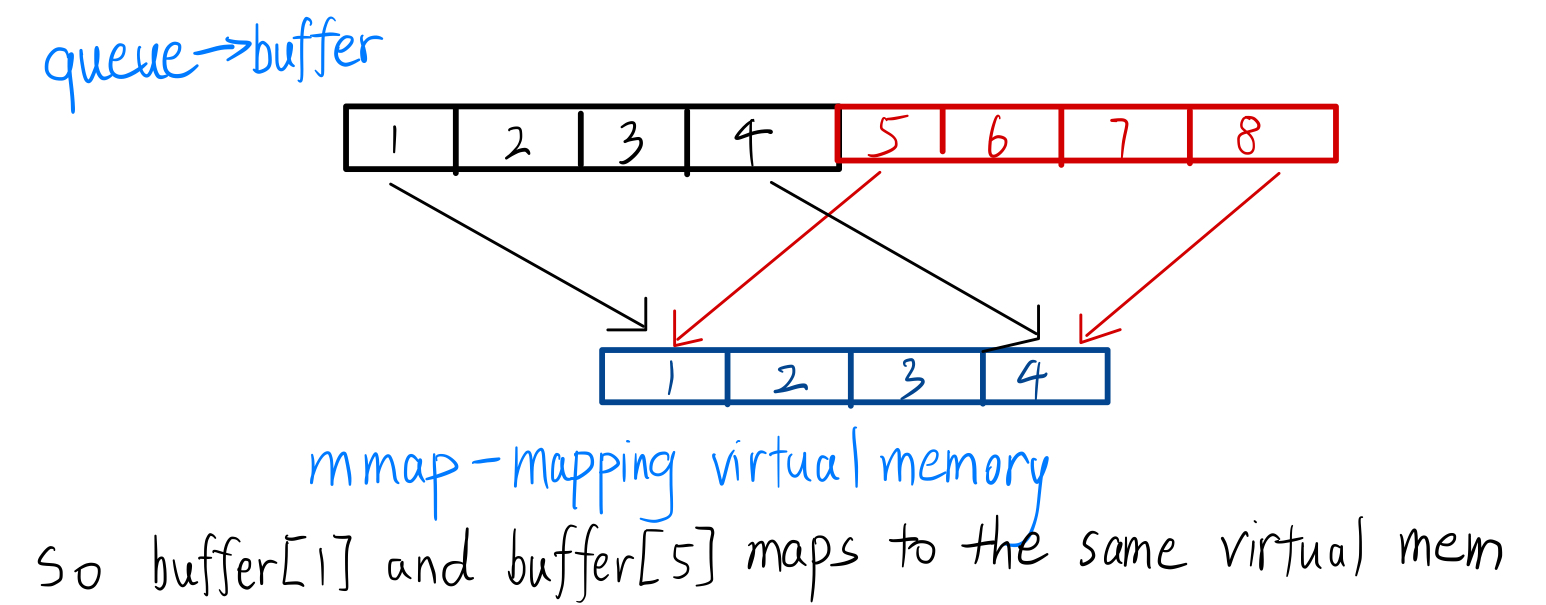 queue→buffer
1 2 3 4 5 6 7 8
1 2 3 4
mmap-mapping virtual memory
So buffer[1] and buffer[5] maps to the same virtual mem